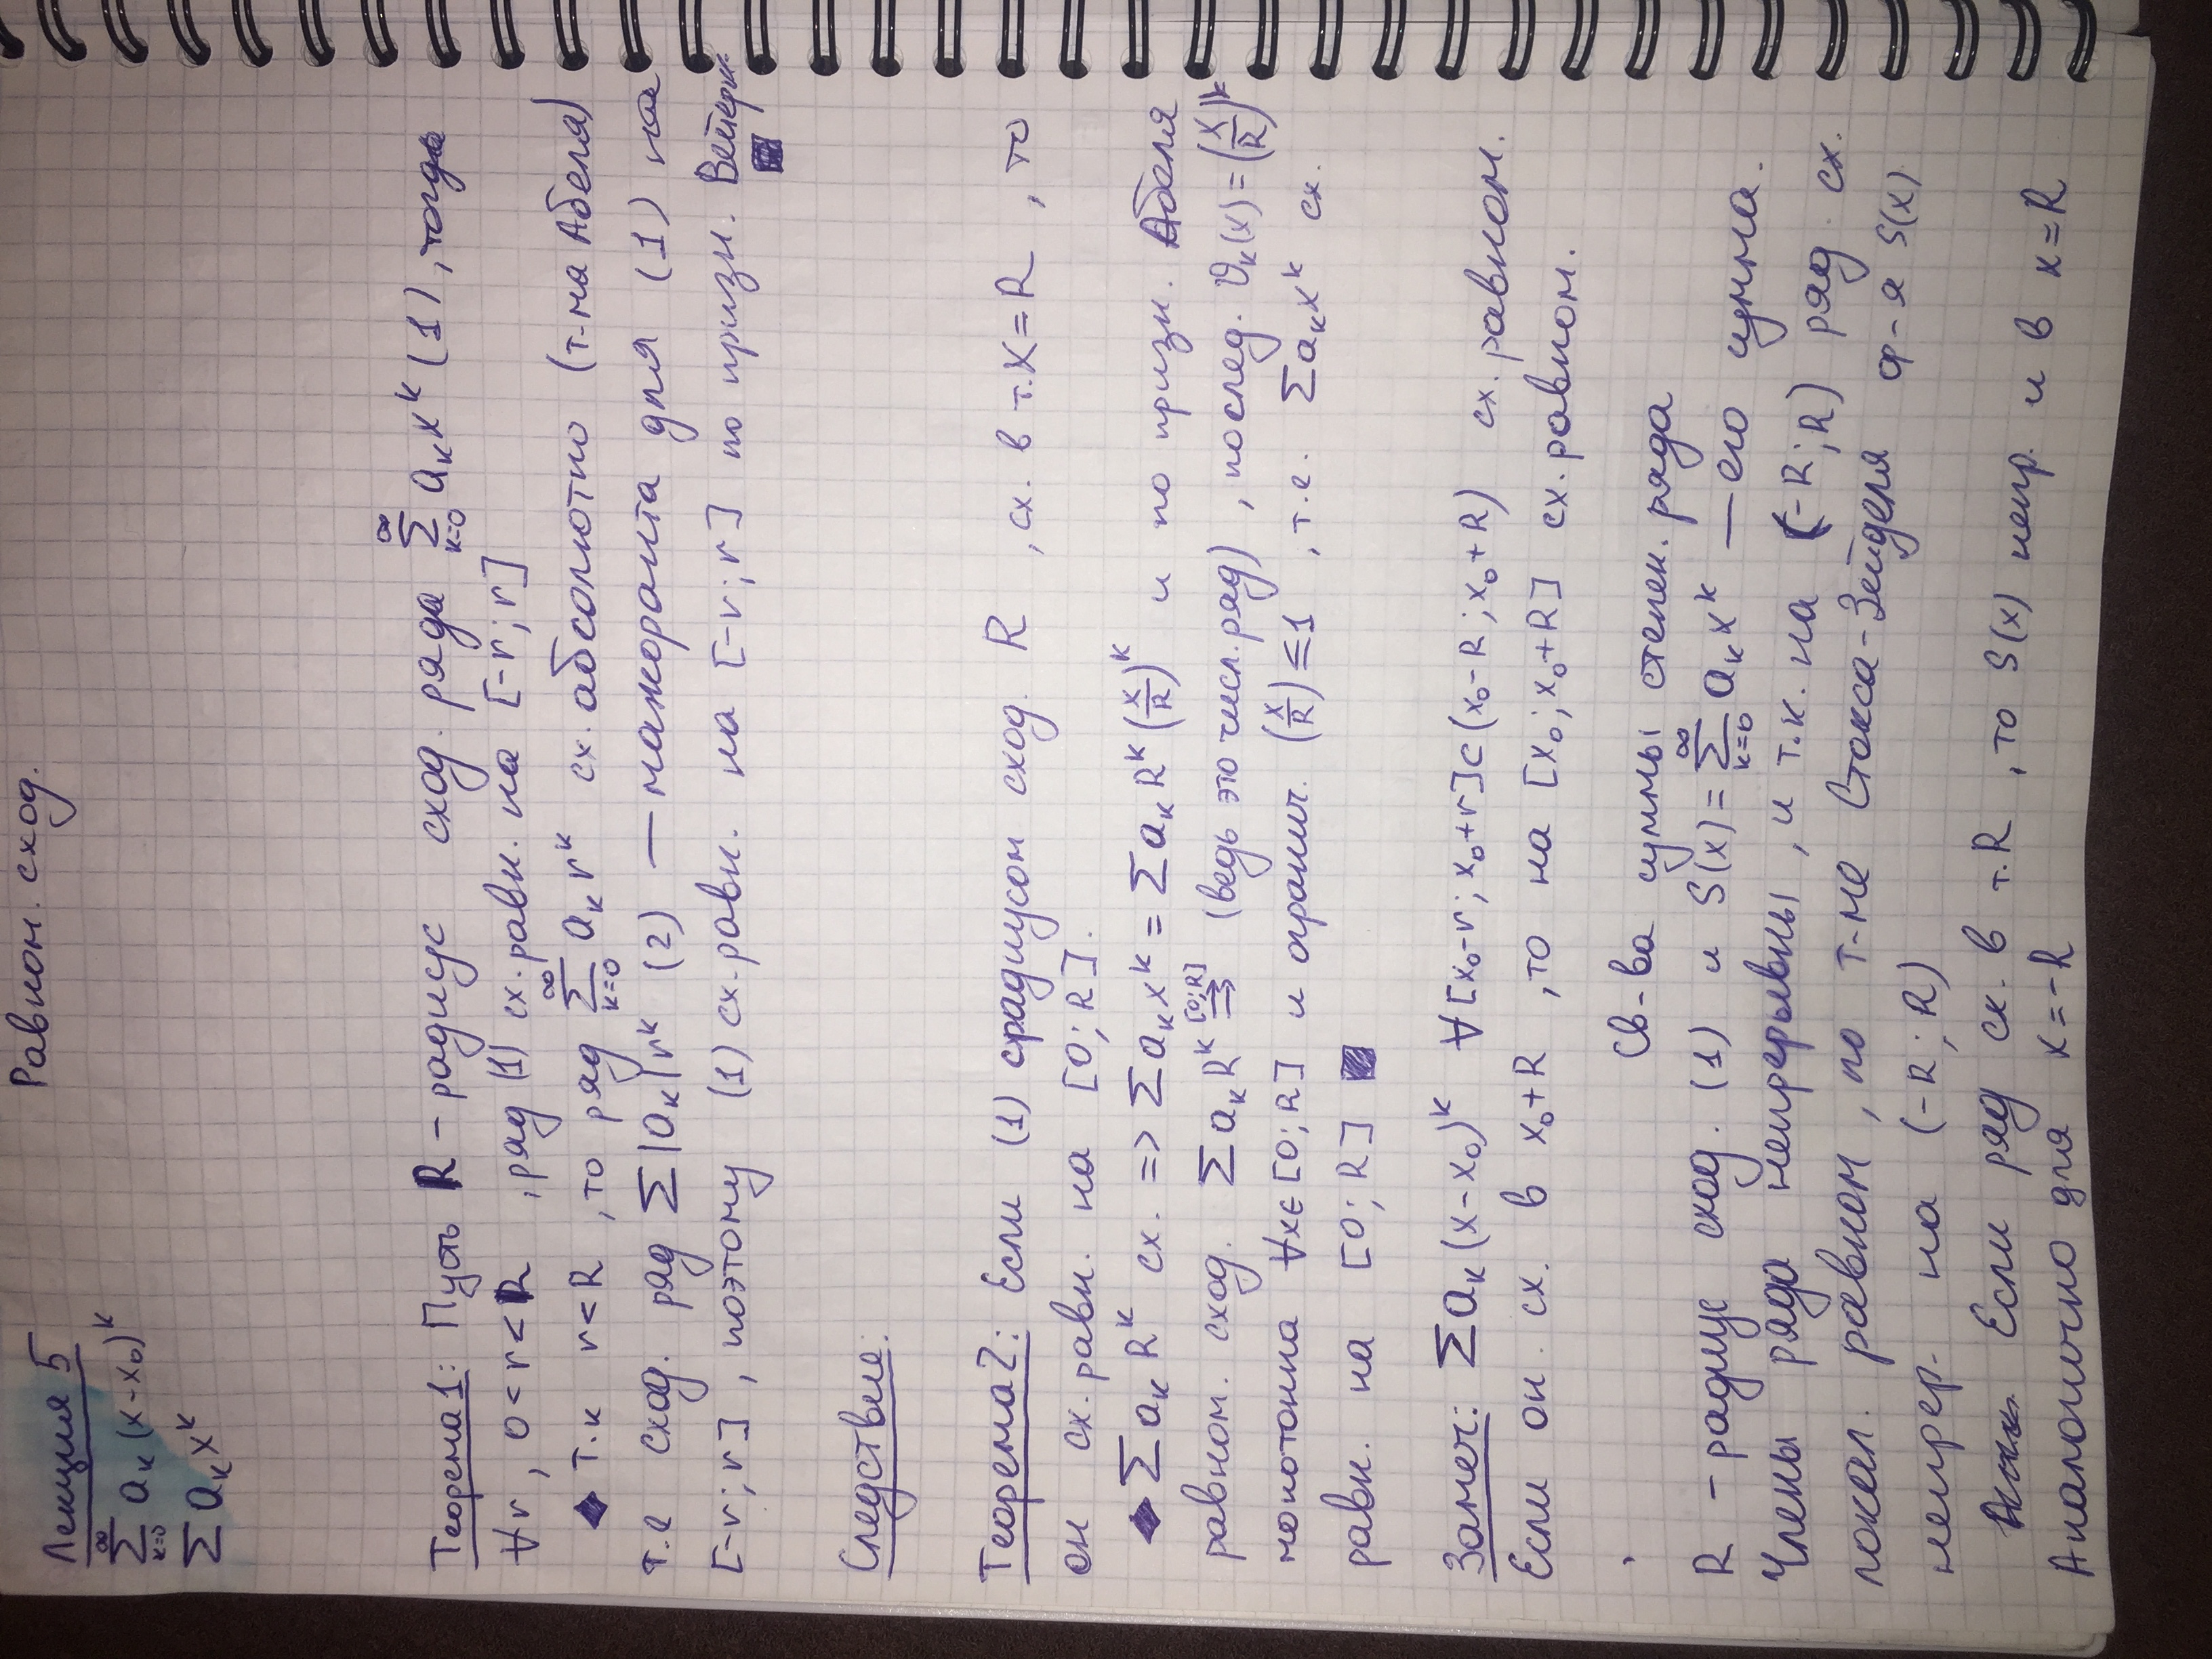 Равном. сход.
Лекция 5
∑_{k=0}^{∞} a_k (x-x_0)^k
∑ a_k x^k
Теорема 1: Пусть R – радиус сход. ряда ∑_{k=0}^{∞} a_k x^k (1), тогда
∀r, 0<r<R , ряд (1) сх. равн. на [-r; r]
◆ т.к r<R , то ряд ∑_{k=0}^{∞} a_k r^k сх. абсолютно (т-ма Абеля)
т.е сход. ряд ∑|a_k| r^k (2) — мажоранта для (1) на
[-r; r] , поэтому (1) сх. равн. на [-r; r] по призн. Вейерш.
■
Следствие:
Теорема 2: Если (1) с радиусом сход. R , сх. в т. x=R , то
он сх. равн. на [0; R].
◆ ∑ a_k R^k сх. => ∑ a_k x^k = ∑ a_k R^k (x/R)^k и по призн. Абеля
равном. сход. ∑ a_k R^k ⇉^{[0;R]} (ведь это числ. ряд) , послед. ϑ_k(x) = (x/R)^k
монотонна ∀x∈[0; R] и огранич. (x/R) ≤ 1 , т.е. ∑ a_k x^k сх.
равн. на [0; R] ■
Замеч: ∑ a_k (x-x_0)^k ∀[x_0-r; x_0+r]⊂(x_0-R; x_0+R) сх. равном.
Если он сх. в x_0+R , то на [x_0; x_0+R] сх. равном.
Св-ва суммы степен. ряда
R – радиус сход. (1) и S(x) = ∑_{k=0}^{∞} a_k x^k — его сумма.
Члены ряда непрерывны , и т.к. на (-R; R) ряд сх.
локал. равном , по т-ме Стокса-Зейделя ф-я S(x)
непрер. на (-R; R)
Если ряд сх. в т. R , то S(x) непр. и в x=R
Аналогично для x=-R